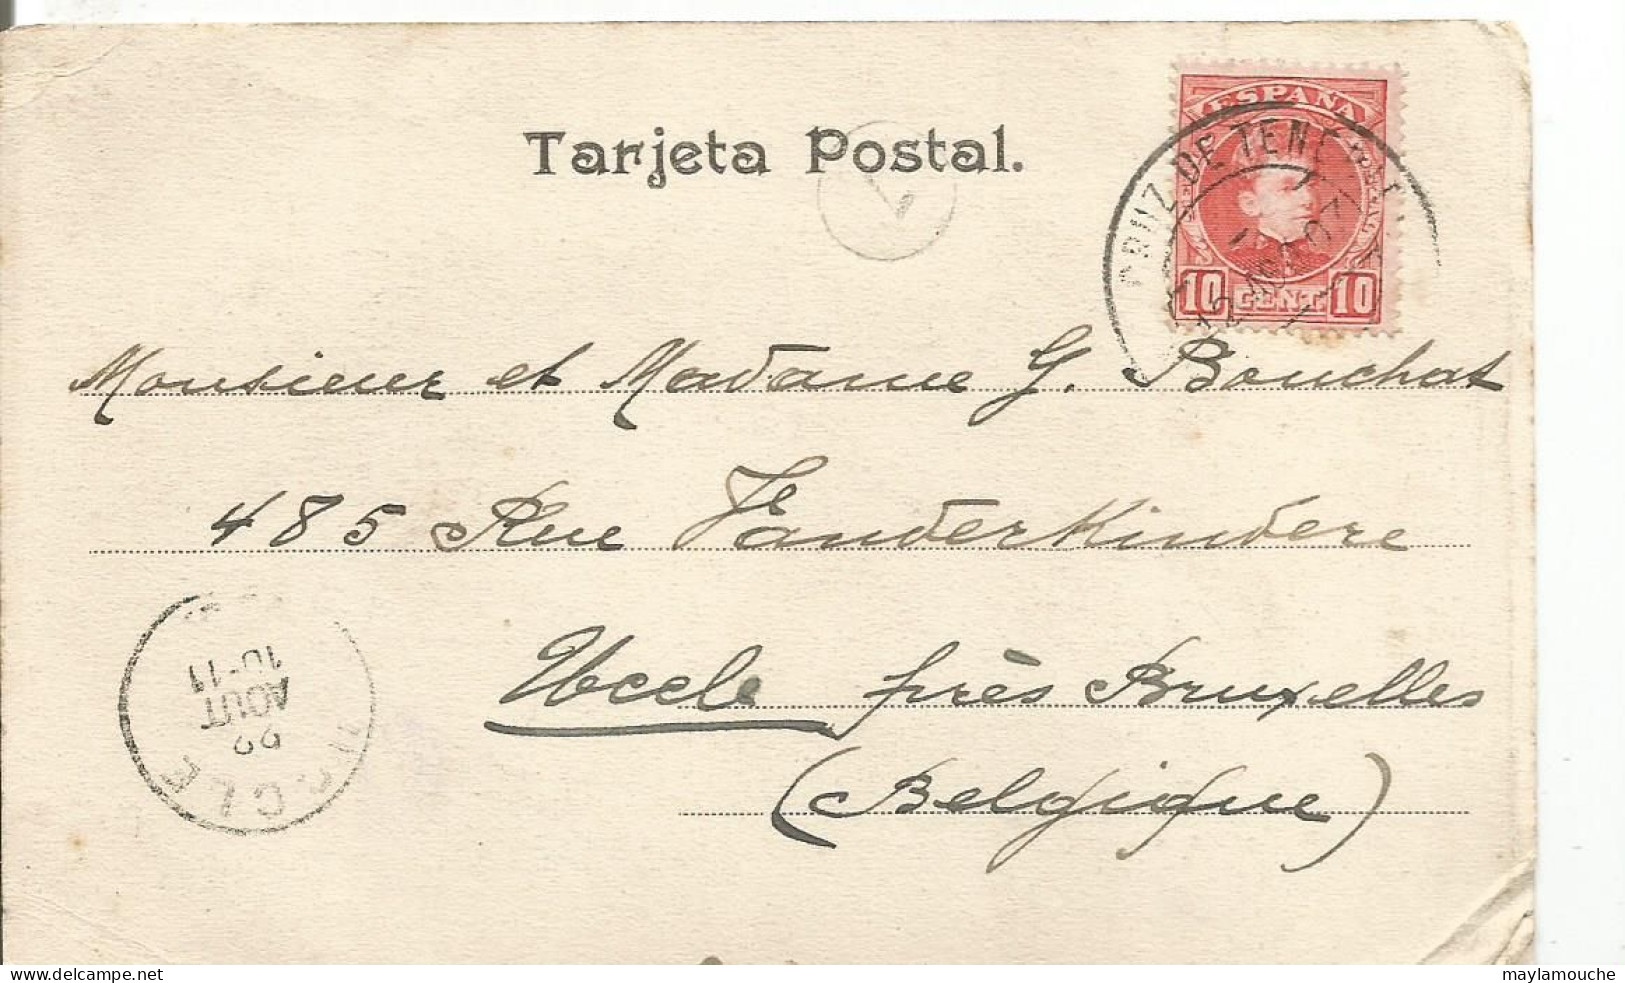 Tarjeta Postal.
ESPAÑA
10 CENT. 10
CRUZ DE TENERIFE
12 AGO 07
Monsieur et Madame G. Bouchat
485 Rue Vanderkindere
Uccle près Bruxelles
(Belgique)
UCCLE
22
AOUT
10-11
maylamouche